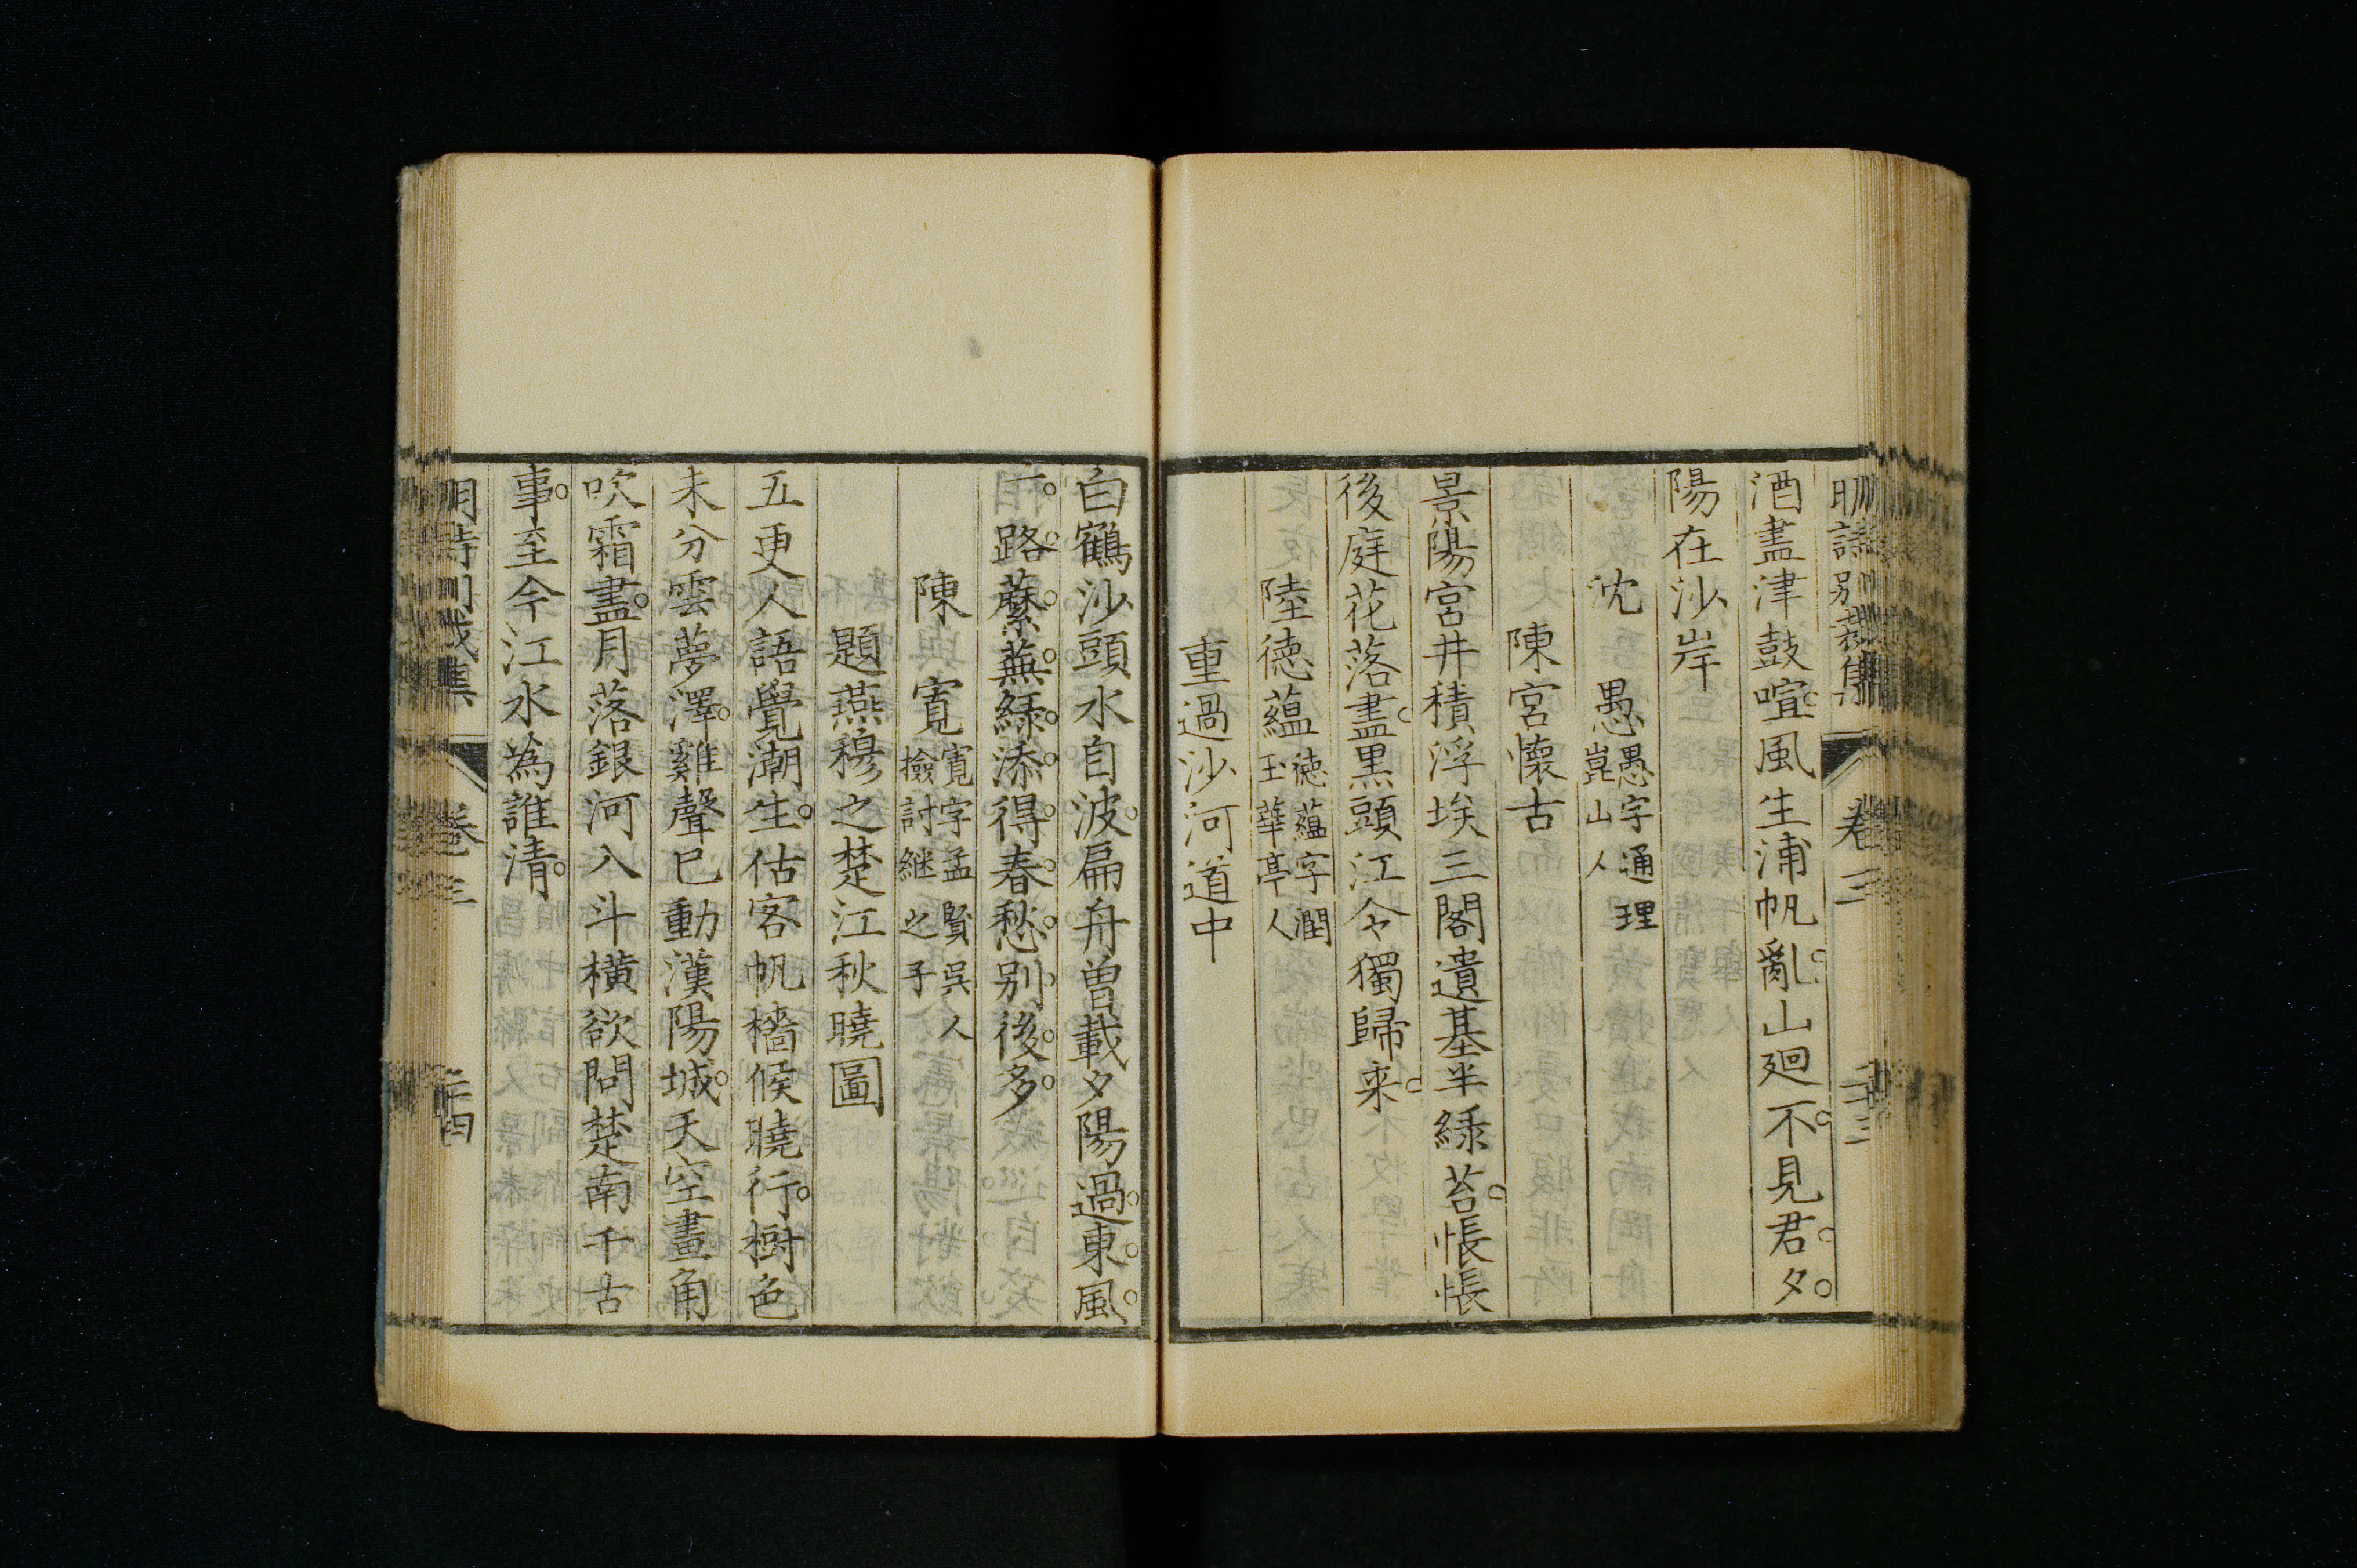 明詩別裁集 卷三 二十三
酒盡津鼓喧風生浦帆亂山廻不見君夕
陽在沙岸
沈愚愚字通理
崑山人
陳宮懷古
景陽宮井積浮埃三閣遺基半綠苔悵悵
後庭花落盡黑頭江令獨歸来
陸徳蘊徳蘊字潤
玉華亭人
重過沙河道中
白鶴沙頭水自波扁舟曽載夕陽過東風
一路蘼蕪綠添得春愁別後多
陳寬寬字孟賢吳人
檢討継之子
題燕穆之楚江秋曉圖
五更人語覺潮生估客帆檣候曉行樹色
未分雲夢澤雞聲已動漢陽城天空畫角
吹霜盡月落銀河入斗橫欲問楚南千古
事至今江水為誰清
明詩別裁集 卷三 二十四